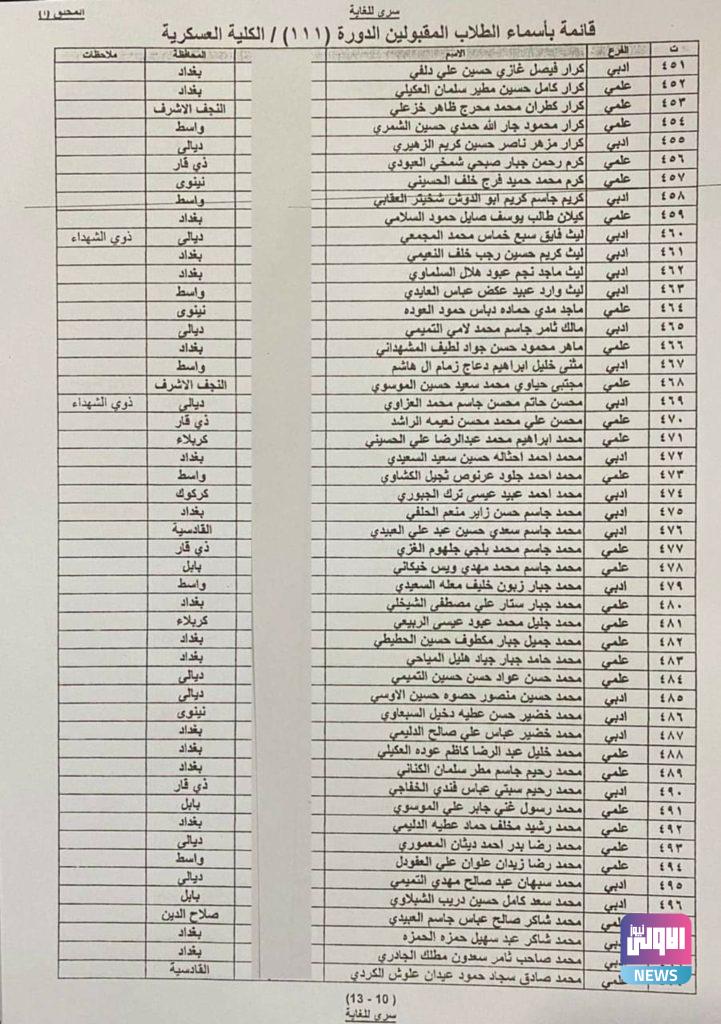 سري للغاية
الملحق (أ)
قائمة بأسماء الطلاب المقبولين الدورة (١١١) / الكلية العسكرية
ت الفرع الاسم المحافظة ملاحظات
٤٥١ ادبي كرار فيصل غازي حسين علي دلفي بغداد
٤٥٢ علمي كرار كامل حسين مطير سلمان العكيلي بغداد
٤٥٣ علمي كرار كطران محمد محرج ظاهر خزعلي النجف الاشرف
٤٥٤ علمي كرار محمود جار الله حمدي حسين الشمري واسط
٤٥٥ ادبي كرار مزهر ناصر حسين كريم الزهيري ديالى
٤٥٦ علمي كرم رحمن جبار صبحي شمخي العبودي ذي قار
٤٥٧ علمي كرم محمد حميد فرج خلف الحسيني نينوى
٤٥٨ ادبي كريم جاسم كريم ابو الدوش شخيتر العقابي واسط
٤٥٩ علمي كيلان طالب يوسف صايل حمود السلامي بغداد
٤٦٠ ادبي ليث فايق سبع خماس محمد المجمعي ديالى ذوي الشهداء
٤٦١ ادبي ليث كريم حسين رجب خلف النعيمي بغداد
٤٦٢ ادبي ليث ماجد نجم عبود هلال السلماوي بغداد
٤٦٣ ادبي ليث وارد عبيد عكض عباس العايدي واسط
٤٦٤ علمي ماجد مدي حماده دباس حمود العوده نينوى
٤٦٥ ادبي مالك ثامر جاسم محمد لامي التميمي ديالى
٤٦٦ علمي ماهر محمود حسن جواد لطيف المشهداني بغداد
٤٦٧ ادبي مثنى خليل ابراهيم دعاج زمام ال هاشم واسط
٤٦٨ علمي مجتبى حياوي محمد سعيد حسين الموسوي النجف الاشرف
٤٦٩ ادبي محسن حاتم محسن جاسم محمد العزاوي ديالى ذوي الشهداء
٤٧٠ علمي محسن علي محمد محسن نعيمه الراشد ذي قار
٤٧١ علمي محمد ابراهيم محمد عبدالرضا علي الحسيني كربلاء
٤٧٢ ادبي محمد احمد احثاله حسين سعيد السعيدي بغداد
٤٧٣ علمي محمد احمد جلود عرنوص ثجيل الكشاوي واسط
٤٧٤ ادبي محمد احمد عبيد عيسى ترك الجبوري كركوك
٤٧٥ ادبي محمد جاسم حسن زاير منعم الحلفي بغداد
٤٧٦ ادبي محمد جاسم سعدي حسين عبد علي العبيدي القادسية
٤٧٧ علمي محمد جاسم محمد بلجي جلهوم الغزي ذي قار
٤٧٨ علمي محمد جاسم محمد مهدي ويس خيكاني بابل
٤٧٩ ادبي محمد جبار زبون خليف معله السعيدي واسط
٤٨٠ علمي محمد جبار ستار علي مصطفى الشيخلي بغداد
٤٨١ علمي محمد جليل محمد عبود عيسى الربيعي كربلاء
٤٨٢ علمي محمد جميل جبار مكطوف حسين الحطيطي بغداد
٤٨٣ علمي محمد حامد جبار جياد هليل المياحي بغداد
٤٨٤ علمي محمد حسن عواد حسن حسين التميمي ديالى
٤٨٥ ادبي محمد حسين منصور حصوه حسين الاوسي ديالى
٤٨٦ ادبي محمد خضير حسن عطيه دخيل السبعاوي نينوى
٤٨٧ ادبي محمد خضير عباس علي صالح الدليمي بغداد
٤٨٨ علمي محمد خليل عبد الرضا كاظم عوده العكيلي بغداد
٤٨٩ علمي محمد رحيم جاسم مطر سلمان الكناني بغداد
٤٩٠ ادبي محمد رحيم سبتي عباس فندي الخفاجي ذي قار
٤٩١ علمي محمد رسول غني جابر علي الموسوي بابل
٤٩٢ علمي محمد رشيد مخلف حماد عطيه الدليمي بغداد
٤٩٣ علمي محمد رضا بدر احمد ديثان المعموري ديالى
٤٩٤ علمي محمد رضا زيدان علوان علي العقودل واسط
٤٩٥ ادبي محمد سبهان عبد صالح مهدي التميمي ديالى
٤٩٦ ادبي محمد سعد كامل حسين دريب الشبلاوي بابل
محمد شاكر صالح عباس جاسم العبيدي صلاح الدين
محمد شاكر عبد سهيل حمزه الحمزه بغداد
محمد صاحب ثامر سعدون مطلك الجادري بغداد
علمي محمد صادق سجاد حمود عيدان علوش الكردي القادسية
الاولى نيوز
NEWS
(10 - 13)
سري للغاية